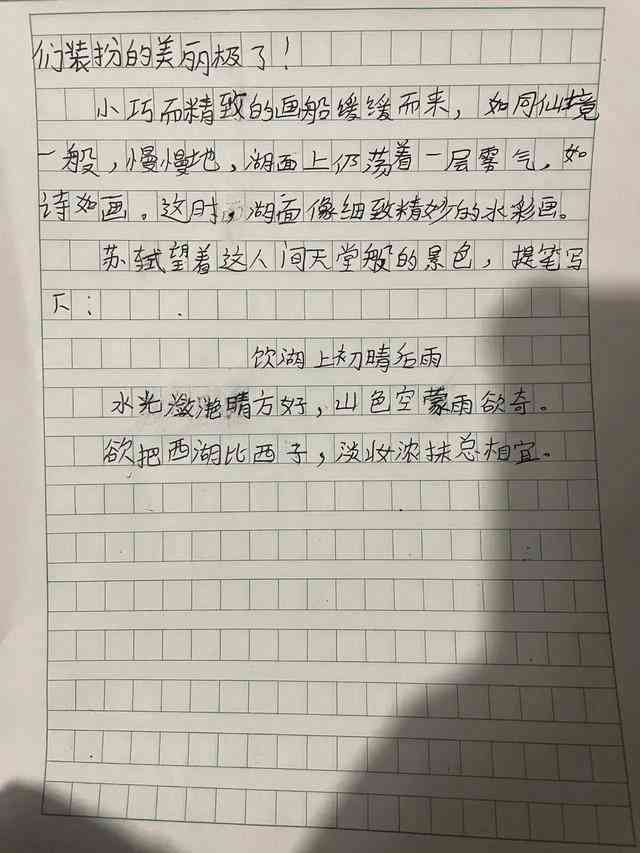 们装扮的美丽极了！
小巧而精致的画船缓缓而来，如同仙境
一般，慢慢地，湖面上仍荡着一层雾气，如
诗如画。这时，湖面像细致精妙的水彩画。
苏轼望着这人间天堂般的景色，提笔写
下：
饮湖上初晴后雨
水光潋滟晴方好，山色空蒙雨欲奇。
欲把西湖比西子，淡妆浓抹总相宜。